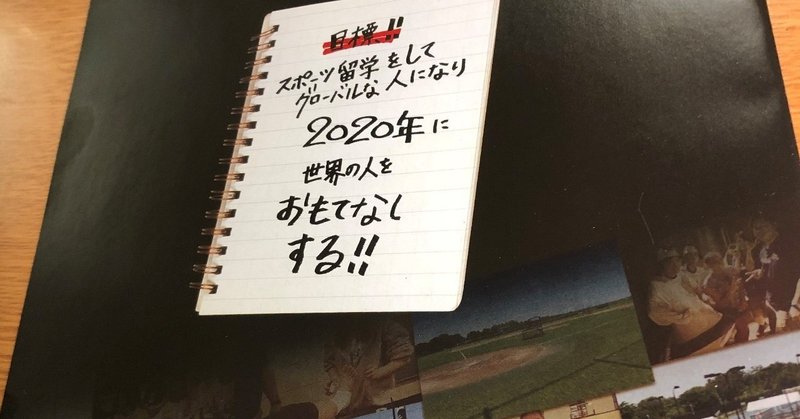 目標!!
スポーツ留学をして
グローバルな人になり
2020年に
世界の人を
おもてなし
する!!